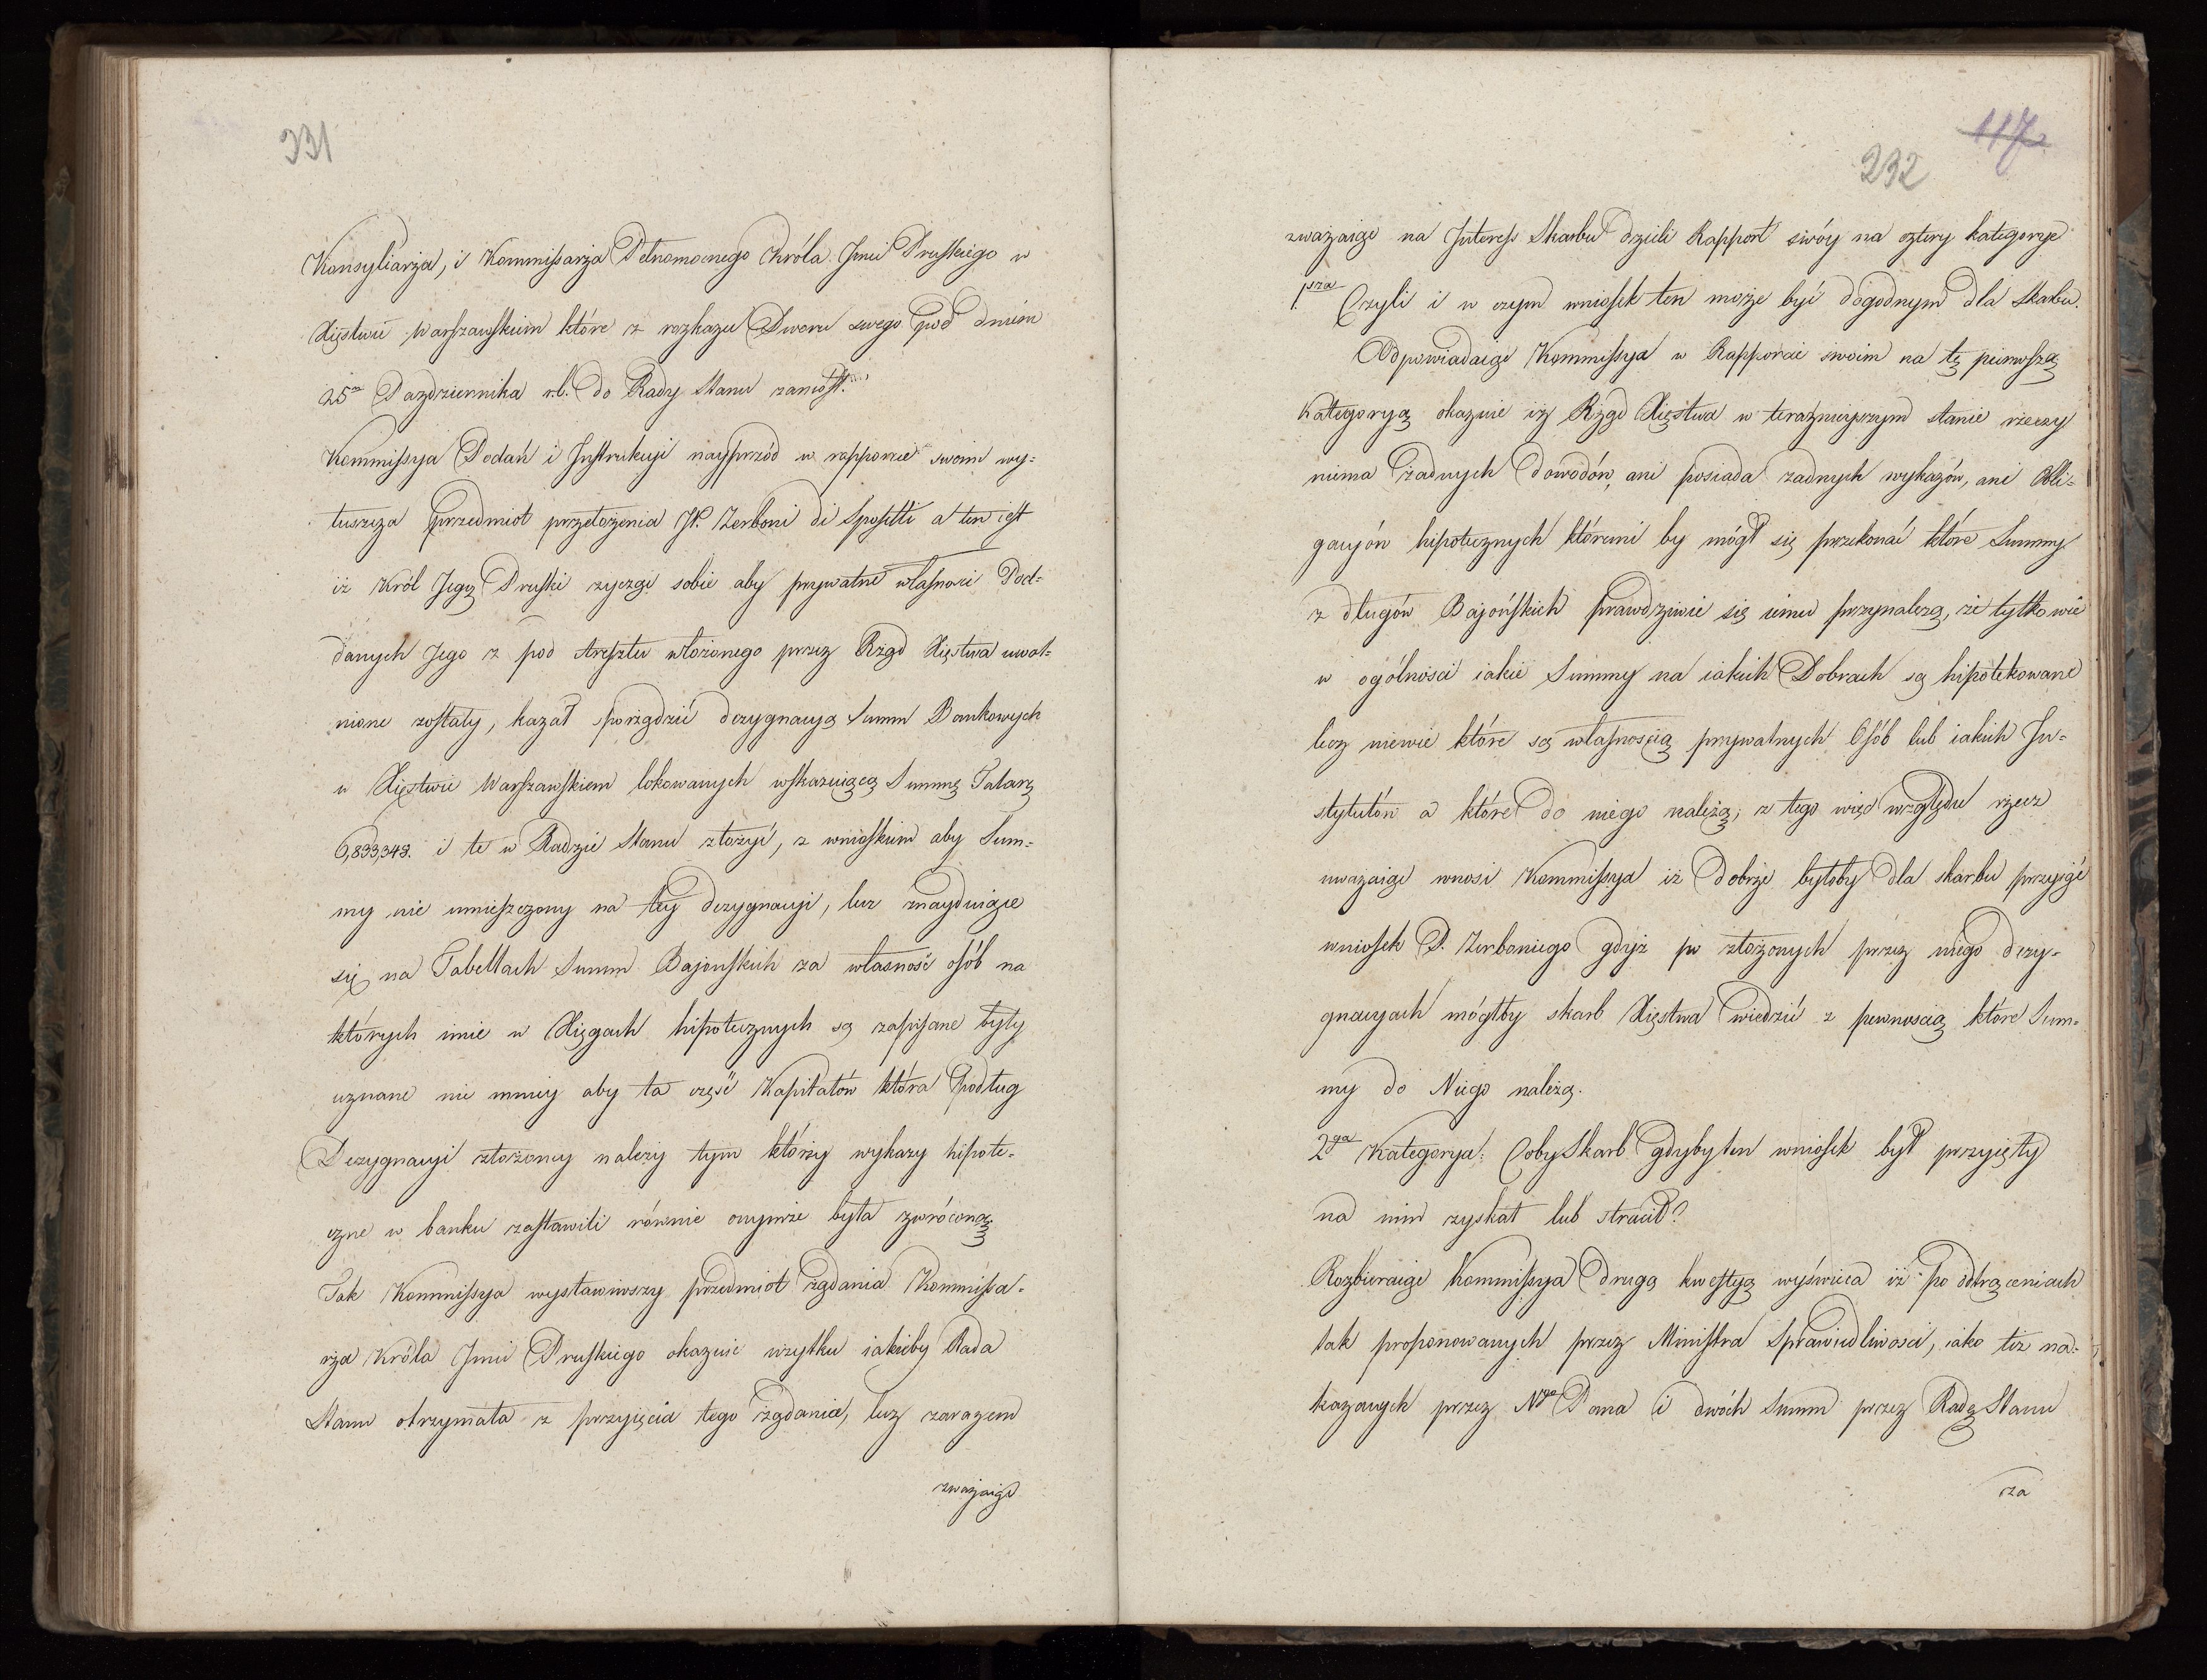 331
Konsyliarza, i Kommissarza Pełnomocnego Króla Jmci Pruskiego w
Xięstwie Warszawskiem które z rozkazu Dworu swego pod dniem
25m Pazdziernika r.b. do Rady Stanu zaniósł.
Kommissya Podań i Instrukcyi nayprzód w rapporcie swoim wy=
tuszcza przedmiot przełożenia JP. Zerboni di Sposetti a ten iest
iż Król Jegą Pruski życząc sobie aby prywatne własności Pod=
danych Jego z pod Aresztu włożonego przez Rząd Xięstwa uwol=
nione zostały, kazał sporządzić dezygnacyą Summ Bankowych
w Xięstwie Warszawskiem lokowanych wskazuiącą Summę Talarą
6,833,349. i te w Radzie Stanu złożyć, z wnioskiem aby Sum=
my nie umieszczony na tey dezygnacyi, lecz znayduiące
się na Tabellach Summ Bajonskich za własność osób na
których imie w Xięgach hipotecznych są zapisane były
uznane nie mniey aby ta część Kapitałów która podług
Dezygnacyi złożoney należy tym którzy wykazy hipote=
czne w banku zastawili równie onymże była zwróconą.
Tak Kommissya wystawiwszy przedmiot żądania Kommissa=
rza Króla Jmci Pruskiego okazuie użytki iakieby Rada
Stanu otrzymała z przyięcia tego żądania, lecz zarazem
zważaiąc
117
232
zważaiąc na Interess Skarbu dzieli Rapport swóy na cztery kategorye
1sza Czyli i w czym wniosek ten może być dogodnym dla Skarbu.
Odpowiadaiąc Kommissya w Rapporcie swoim na tę pierwszą
Kategoryą okazuie iż Rząd Xięstwa w teraźnieyszym stanie rzeczy
niema żadnych dowodów, ani posiada żadnych wykazów, ani Obli=
gacyów hipotecznych któremi by mógł się przekonać które Summy
z długów Bajońskich prawdziwie się iemu przynależą, że tylko wie
w ogólności iakie Summy na iakich Dobrach są hipotekowane
lecz niewie które są własnością prywatnych Osób lub iakich In=
stytutów a które do niego należą; z tego więc względu rzecz
uważaiąc wnosi Kommissya iż dobrze byłoby dla skarbu przyiąć
wniosek P. Zerboniego gdyż po złożonych przez niego dezy=
gnacyach mógłby skarb Xięstwa wiedzieć z pewnością które Sum=
my do Niego należą.
2ga Kategorya: Coby Skarb gdyby ten wniosek był przyięty
na nim zyskał lub stracił?
Rozbieraiąc Kommissya drugą kwestyą wyświeca iż po odtrąceniach
tak proponowanych przez Ministra Sprawiedliwości, iako też na=
kazanych przez Nго Pana i dwóch Summ przez Radę Stanu
za